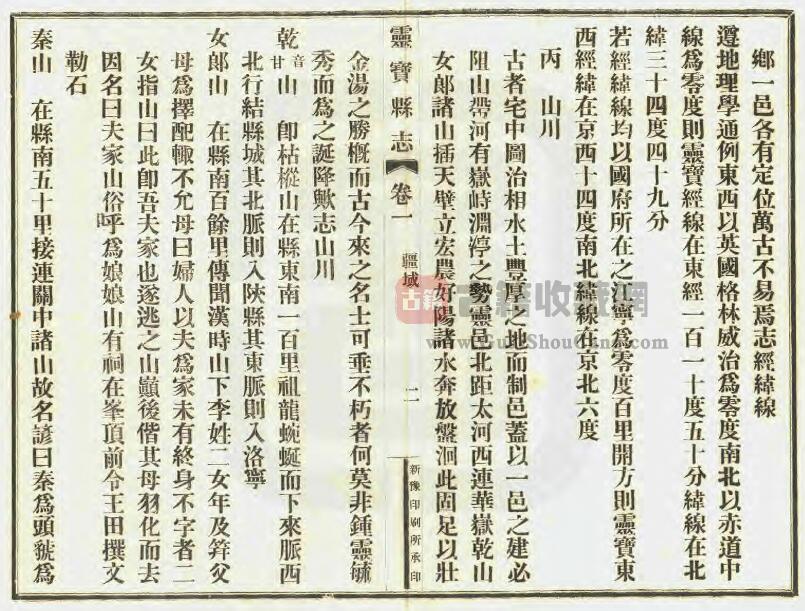 鄉一邑各有定位萬古不易焉志經緯線
遵地理學通例東西以英國格林威治為零度南北以赤道中
線為零度則靈寶經線在東經一百一十度五十分緯線在北
緯三十四度四十九分
若經緯線均以國府所在之江寧為零度百里開方則靈寶東
西經緯在京西十四度南北緯線在京北六度
丙 山川
古者宅中圖治相水土豐厚之地而制邑蓋以一邑之建必
阻山帶河有嶽峙淵渟之勢靈邑北距太河西連華嶽乾山
女郎諸山插天壁立宏農好陽諸水奔放盤洄此固足以壯
靈寶縣志 卷一 疆域 二 新豫印刷所承印
金湯之勝概而古今來之名士可垂不朽者何莫非鍾靈毓
秀而為之誕降歟志山川
乾音甘山 卽枯樅山在縣東南一百里祖龍蜿蜒而下來脈西
北行結縣城其北脈則入陜縣其東脈則入洛寧
女郎山 在縣南百餘里傳聞漢時山下李姓二女年及笄父
母為擇配輙不允母曰婦人以夫為家未有終身不字者二
女指山曰此卽吾夫家也遂逃之山巔後偕其母羽化而去
因名曰夫家山俗呼為娘娘山有祠在峯頂前令王田撰文
勒石
秦山 在縣南五十里接連關中諸山故名諺曰秦為頭虢為
古籍
古籍收藏網
www.GuJiShouCang.com